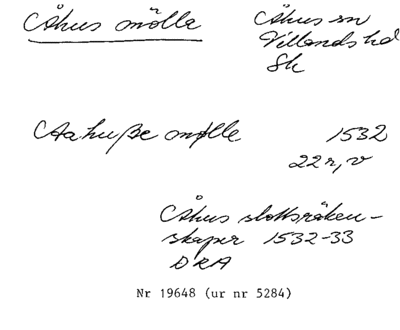 Åhus mölla
Åhus sn
Villands hd
Sk
Aahuße mølle 1532
22 r, v
Åhus slottsräken-
skaper 1532-33
DRA
Nr 19648 (ur nr 5284)